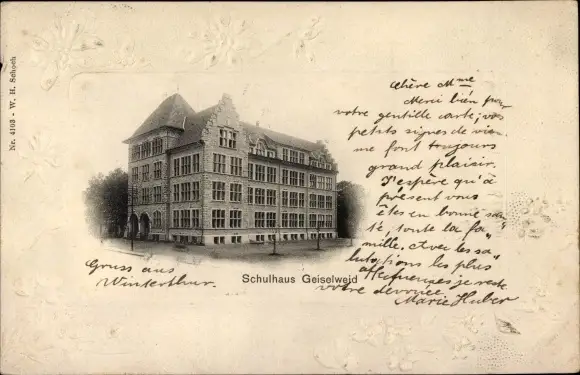 Nr. 4103 - W. H. Schoch
Chère Mme
Merci bien pour
votre gentille carte; vos
petits signes de vie
me font toujours
grand plaisir.
J'espère qu'à
présent vous
êtes en bonne san-
té, toute la fa-
mille, et avec les sa-
lutations les plus
affectueuses je reste
votre dévouée
Marie Huber
Gruss aus
Winterthur.
Schulhaus Geiselweid